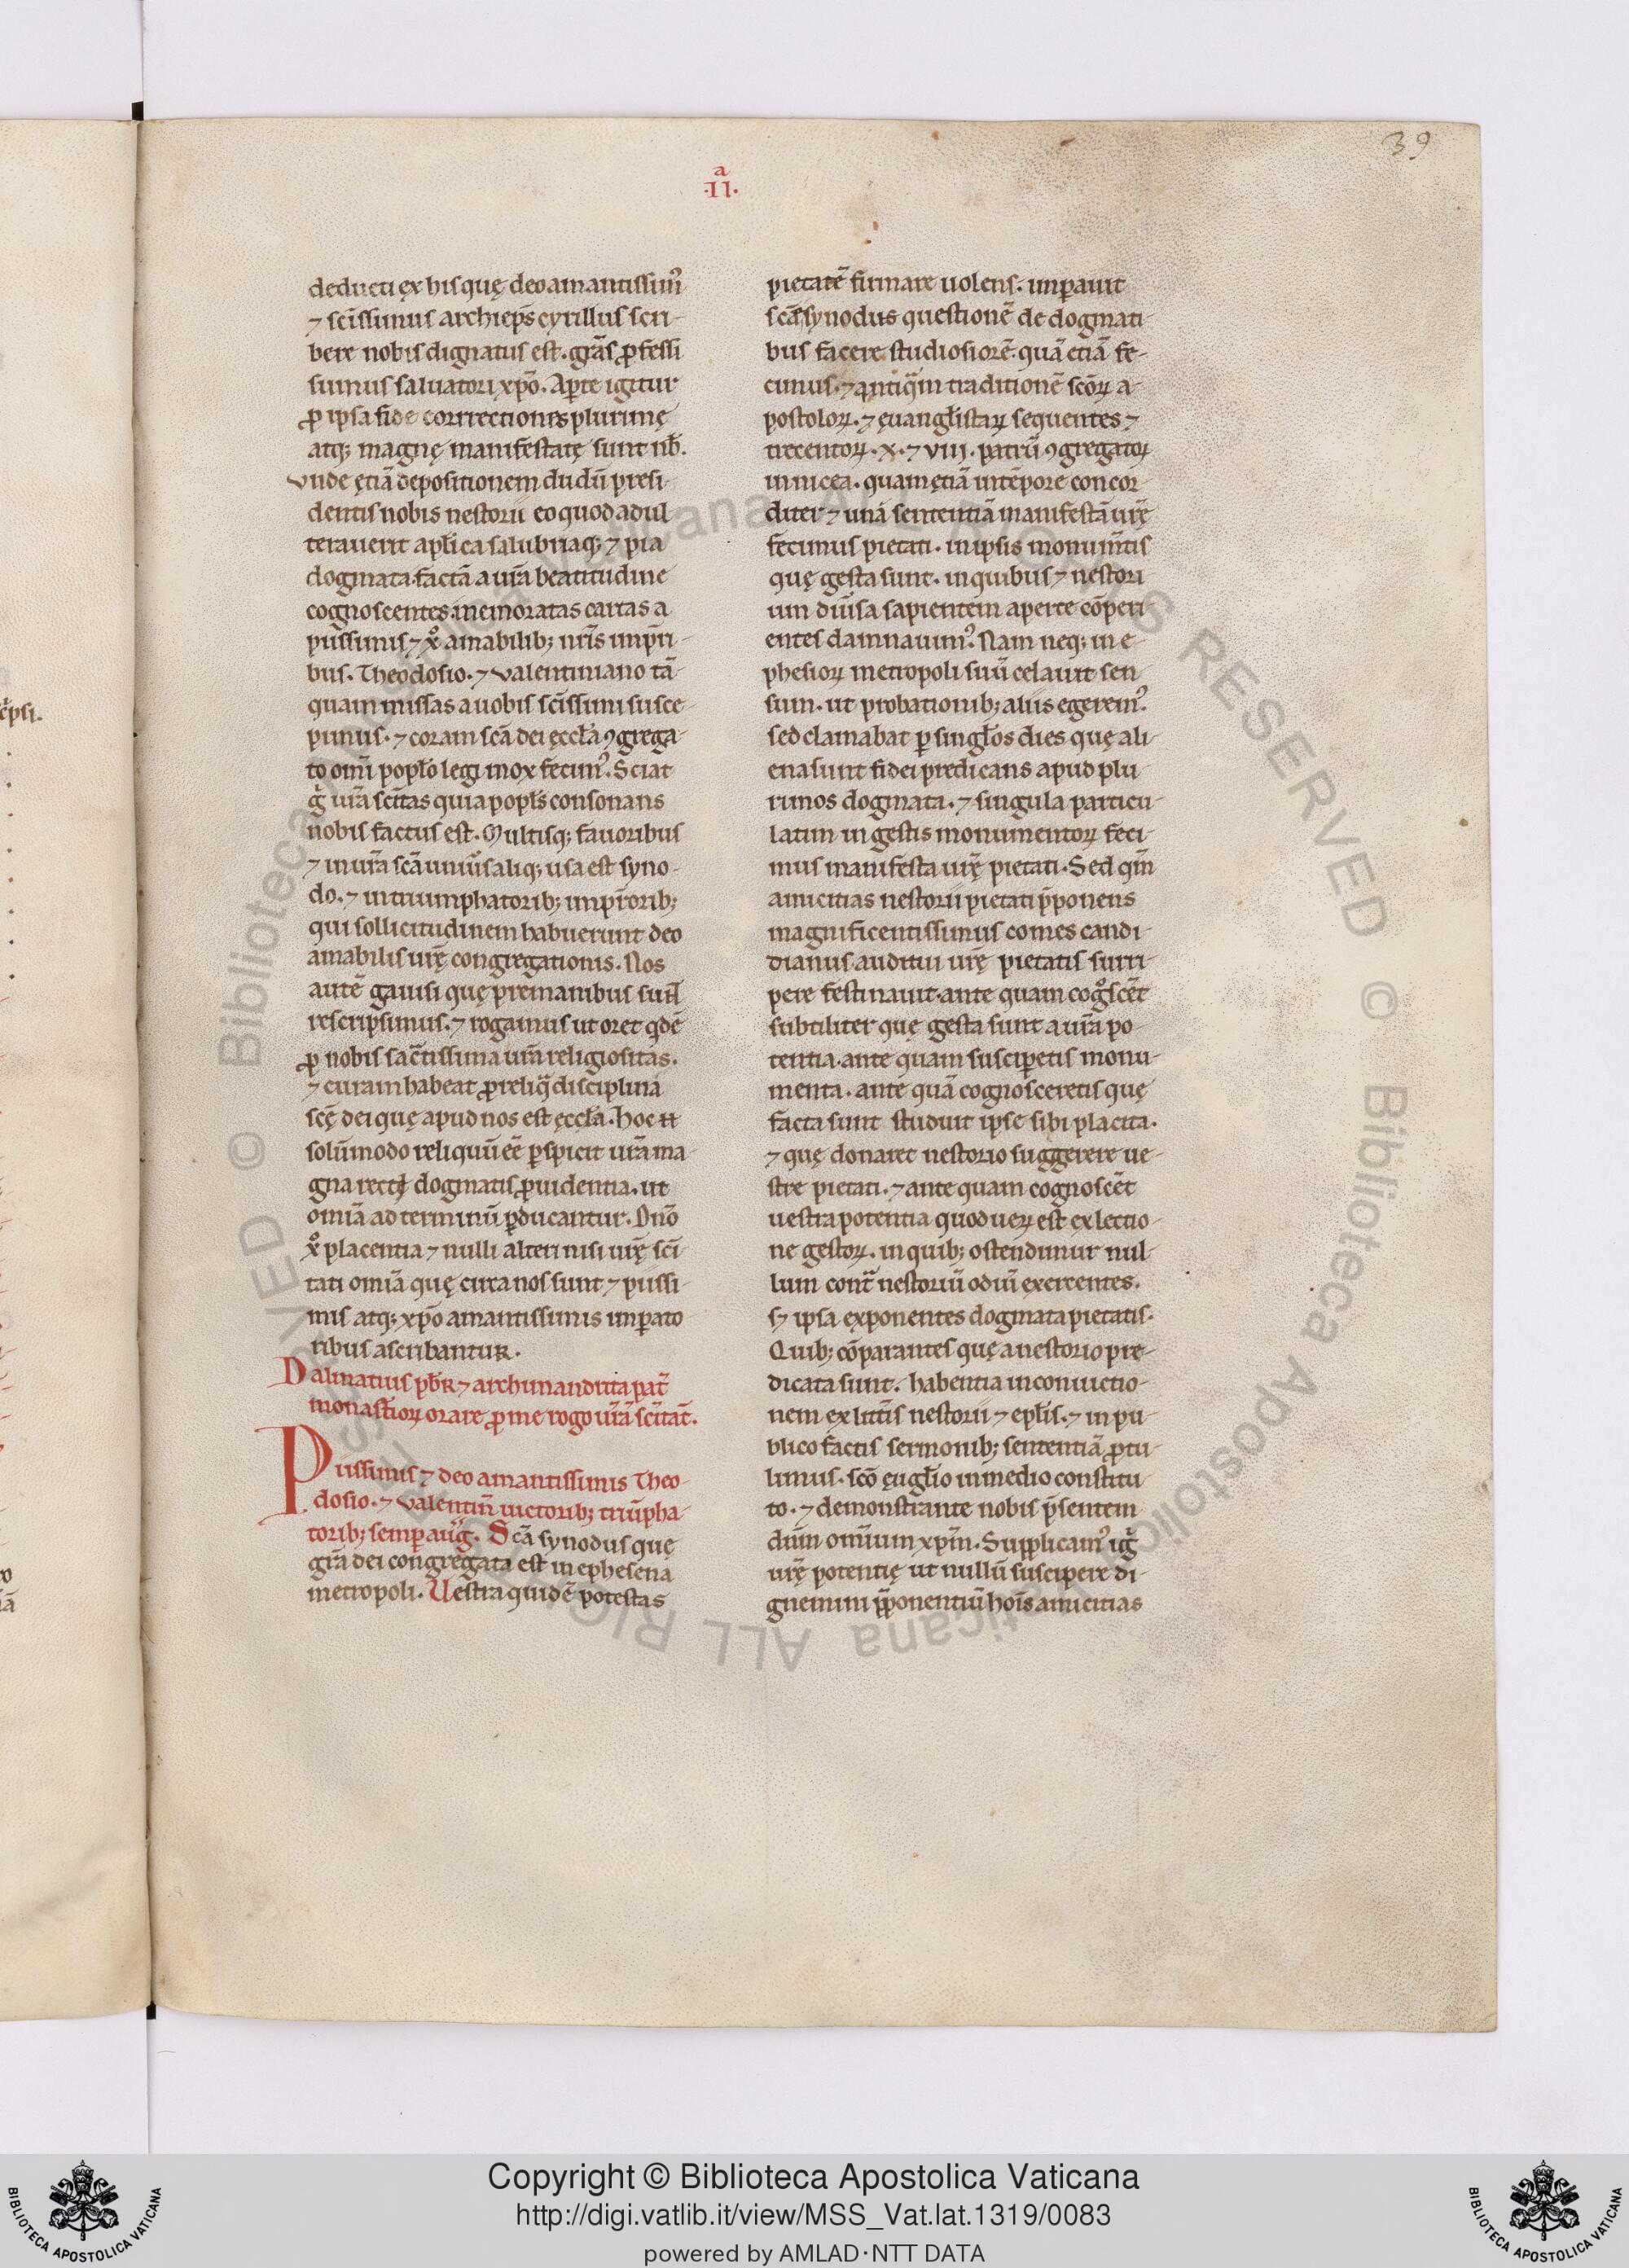 39
a
·II·
deducti ex his quę deo amantissim᷒
⁊ sc̄issimus archiep̄s cyrillus scri-
bere nobis dignatus est. gr̄as ꝓfessi
sumus saluatori xp̄o. Aꝑte igitur
ꝓ ipsa fide corrrectiones plurimę
atq; magnę manifestatę sunt nb̄.
Vnde ętiā depositionem dudū presi-
dentis nobis nestorii eo quod adul
terauerit apl̄ica salubriaq; ⁊ pia
dogmata factā a ur̄a beatitudine
cognoscentes. memoratas cartas a
piissimis ⁊ xp̄o amabilib; nr̄is imꝑ̄ri-
bus. Theodosio. ⁊ valentiniano tā-
quam missas a uobis sc̄issimi susce-
pimus. ⁊ coram sc̄a dei ęccl̄a ꝯgrega-
to om̄i popl̄o legi mox fecim᷒. Sciat
g̊ ur̄a sc̄itas quia popl̄s consonans
nobis factus est. Multisq; fauoribus
⁊ in ur̄a sc̄a uniu͛saliq; usa est syno-
do. ⁊ in triumphatorib; imꝑ̄rorib;
qui sollicitudinem habuerunt deo
amabilis ur̄ę congregationis. Nos
autē gauisi quę premanibus sun̄
rescripsimus. ⁊ rogamus ut oret q̄dē
ꝓ nobis sac̄tissima ur̄a religiositas.
⁊ curam habeat ꝓ reliq̄ disciplina
sc̄ę dei quę apud nos est ęccl̄a. Hoc
solūmodo reliquū eē ꝑspicit ur̄a ma-
gna rectę dogmatis ꝓuidentia. ut
omīa ad terminū ꝑducantur. Dn̄o
xp̊ placentia ⁊ nulli alteri nisi ur̄ę sc̄i-
tati omīa quę circa nos sunt ⁊ piissi-
mis atq; xp̄o amantissimis imꝑato
ribus ascribantur.
Dalmatius pb̄r ⁊ archimandrita pat̄
monast̄ioꝝ orare ꝓ me rogo ur̄ā sc̄itat̄.
Piissimis ⁊ deo amantissimis Theo-
dosio. ⁊ valentin̄ uictorib; triūpha-
torib; semꝑ aug̃. Sc̄a synodus quę
gr̄a dei congregata est in ephesena
metropoli. Uestra quidē potestas
pietatē firmare uolens. imꝑauit
sc̄a synodus questionē de dogmati-
bus facere studiosiorē. quā etiā fe-
cimus. ⁊ antiq̄m traditionē sc̄oꝝ a-
postoloꝝ. ⁊ ęuangl̄istaꝝ sequentes ⁊
trecentoꝝ. x. ⁊ viii. patrū ꝯgregatoꝝ
in nicea. quam ętiā in tēpore concor-
diter ⁊ unā sententiā manifestā ur̄ę
fecimus pietati. in ipsis monum̄tis
quę gesta sunt. in quibus ⁊ nestori
um diu͛sa sapientem aperte cōperi
entes damnauim᷒. Nam neq; in e-
phesioꝝ metropoli suū celauit sen
sum. ut probationib; aliis egerem᷒.
sed clamabat ꝑ singl̄os dies quę ali-
ena sunt fidei predicans apud plu
rimos dogmata. ⁊ singula particu-
latim in gestis monumentoꝝ feci-
mus manifesta ur̄ę pietati. Sed qm̄
amicitias nestorii pietati p̄ponens
magnificentissimus comes candi-
dianus auditui ur̄ę pietatis surri-
pere festinauit. ante quam cog̊scēt
subtiliter quę gesta sunt a ur̄a po-
tentia. ante quam susciꝑetis monu-
menta. ante quā cognosceretis quę
facta sunt studuit ipse sibi placita.
⁊ quę donaret nestorio suggerere ue-
stre pietati. ⁊ ante quam cognoscēt
uestra potentia quod ueꝝ est ex lectio-
ne gestoꝝ. in quib; ostendimur nul-
lum cont̄ nestoriū odiū exercentes.
sꝫ ipsa exponentes dogmata pietatis.
Quib; cōparantes quę a nestorio pre-
dicata sunt. habentia in conuictio-
nem ex litt̄is nestorii ⁊ epl̄is. ⁊ in pu-
blico factis sermonib; sententiā ꝓtu-
limus. sc̄o ęugl̄io in medio constitu-
to. ⁊ demonstrante nobis p̄sentem
dn̄m omīum xp̄m. Supplicam᷒ ig̊
ur̄ę potentię ut nullū suscipere di-
gnemini p̄ponentiū hoīs amicitias
Copyright © Biblioteca Apostolica Vaticana
http://digi.vatlib.it/view/MSS_Vat.lat.1319/0083
powered by AMLAD·NTT DATA
BIBLIOTECA APOSTOLICA VATICANA
BIBLIOTECA APOSTOLICA VATICANA